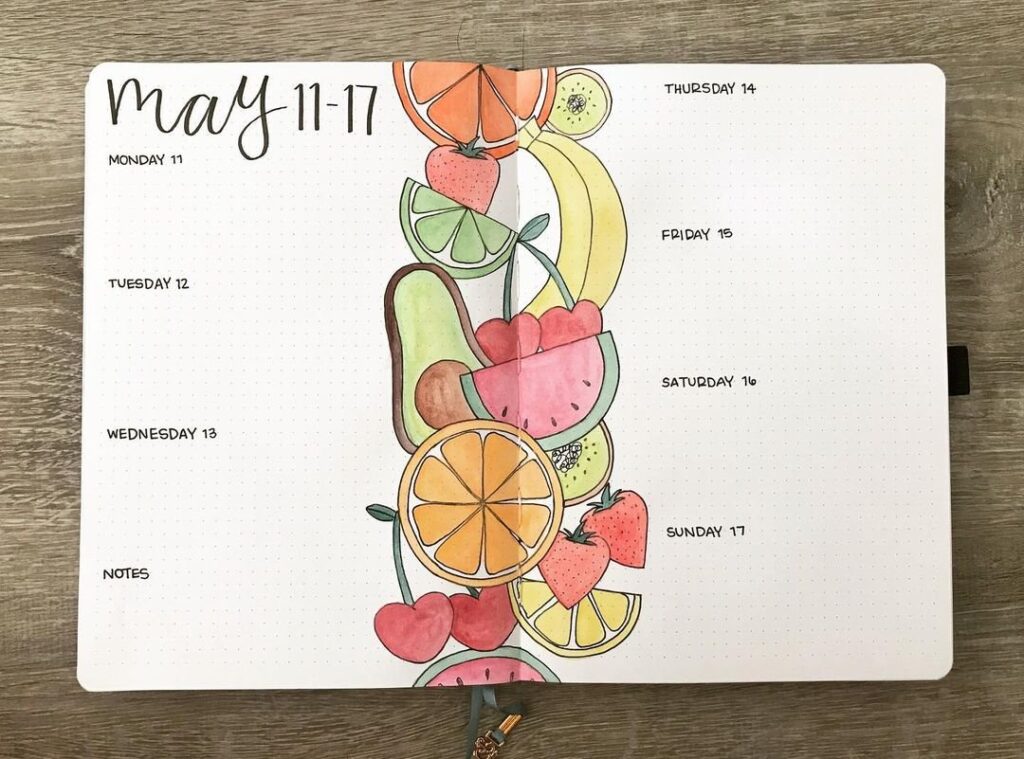 may 11-17
MONDAY 11
TUESDAY 12
WEDNESDAY 13
NOTES
THURSDAY 14
FRIDAY 15
SATURDAY 16
SUNDAY 17